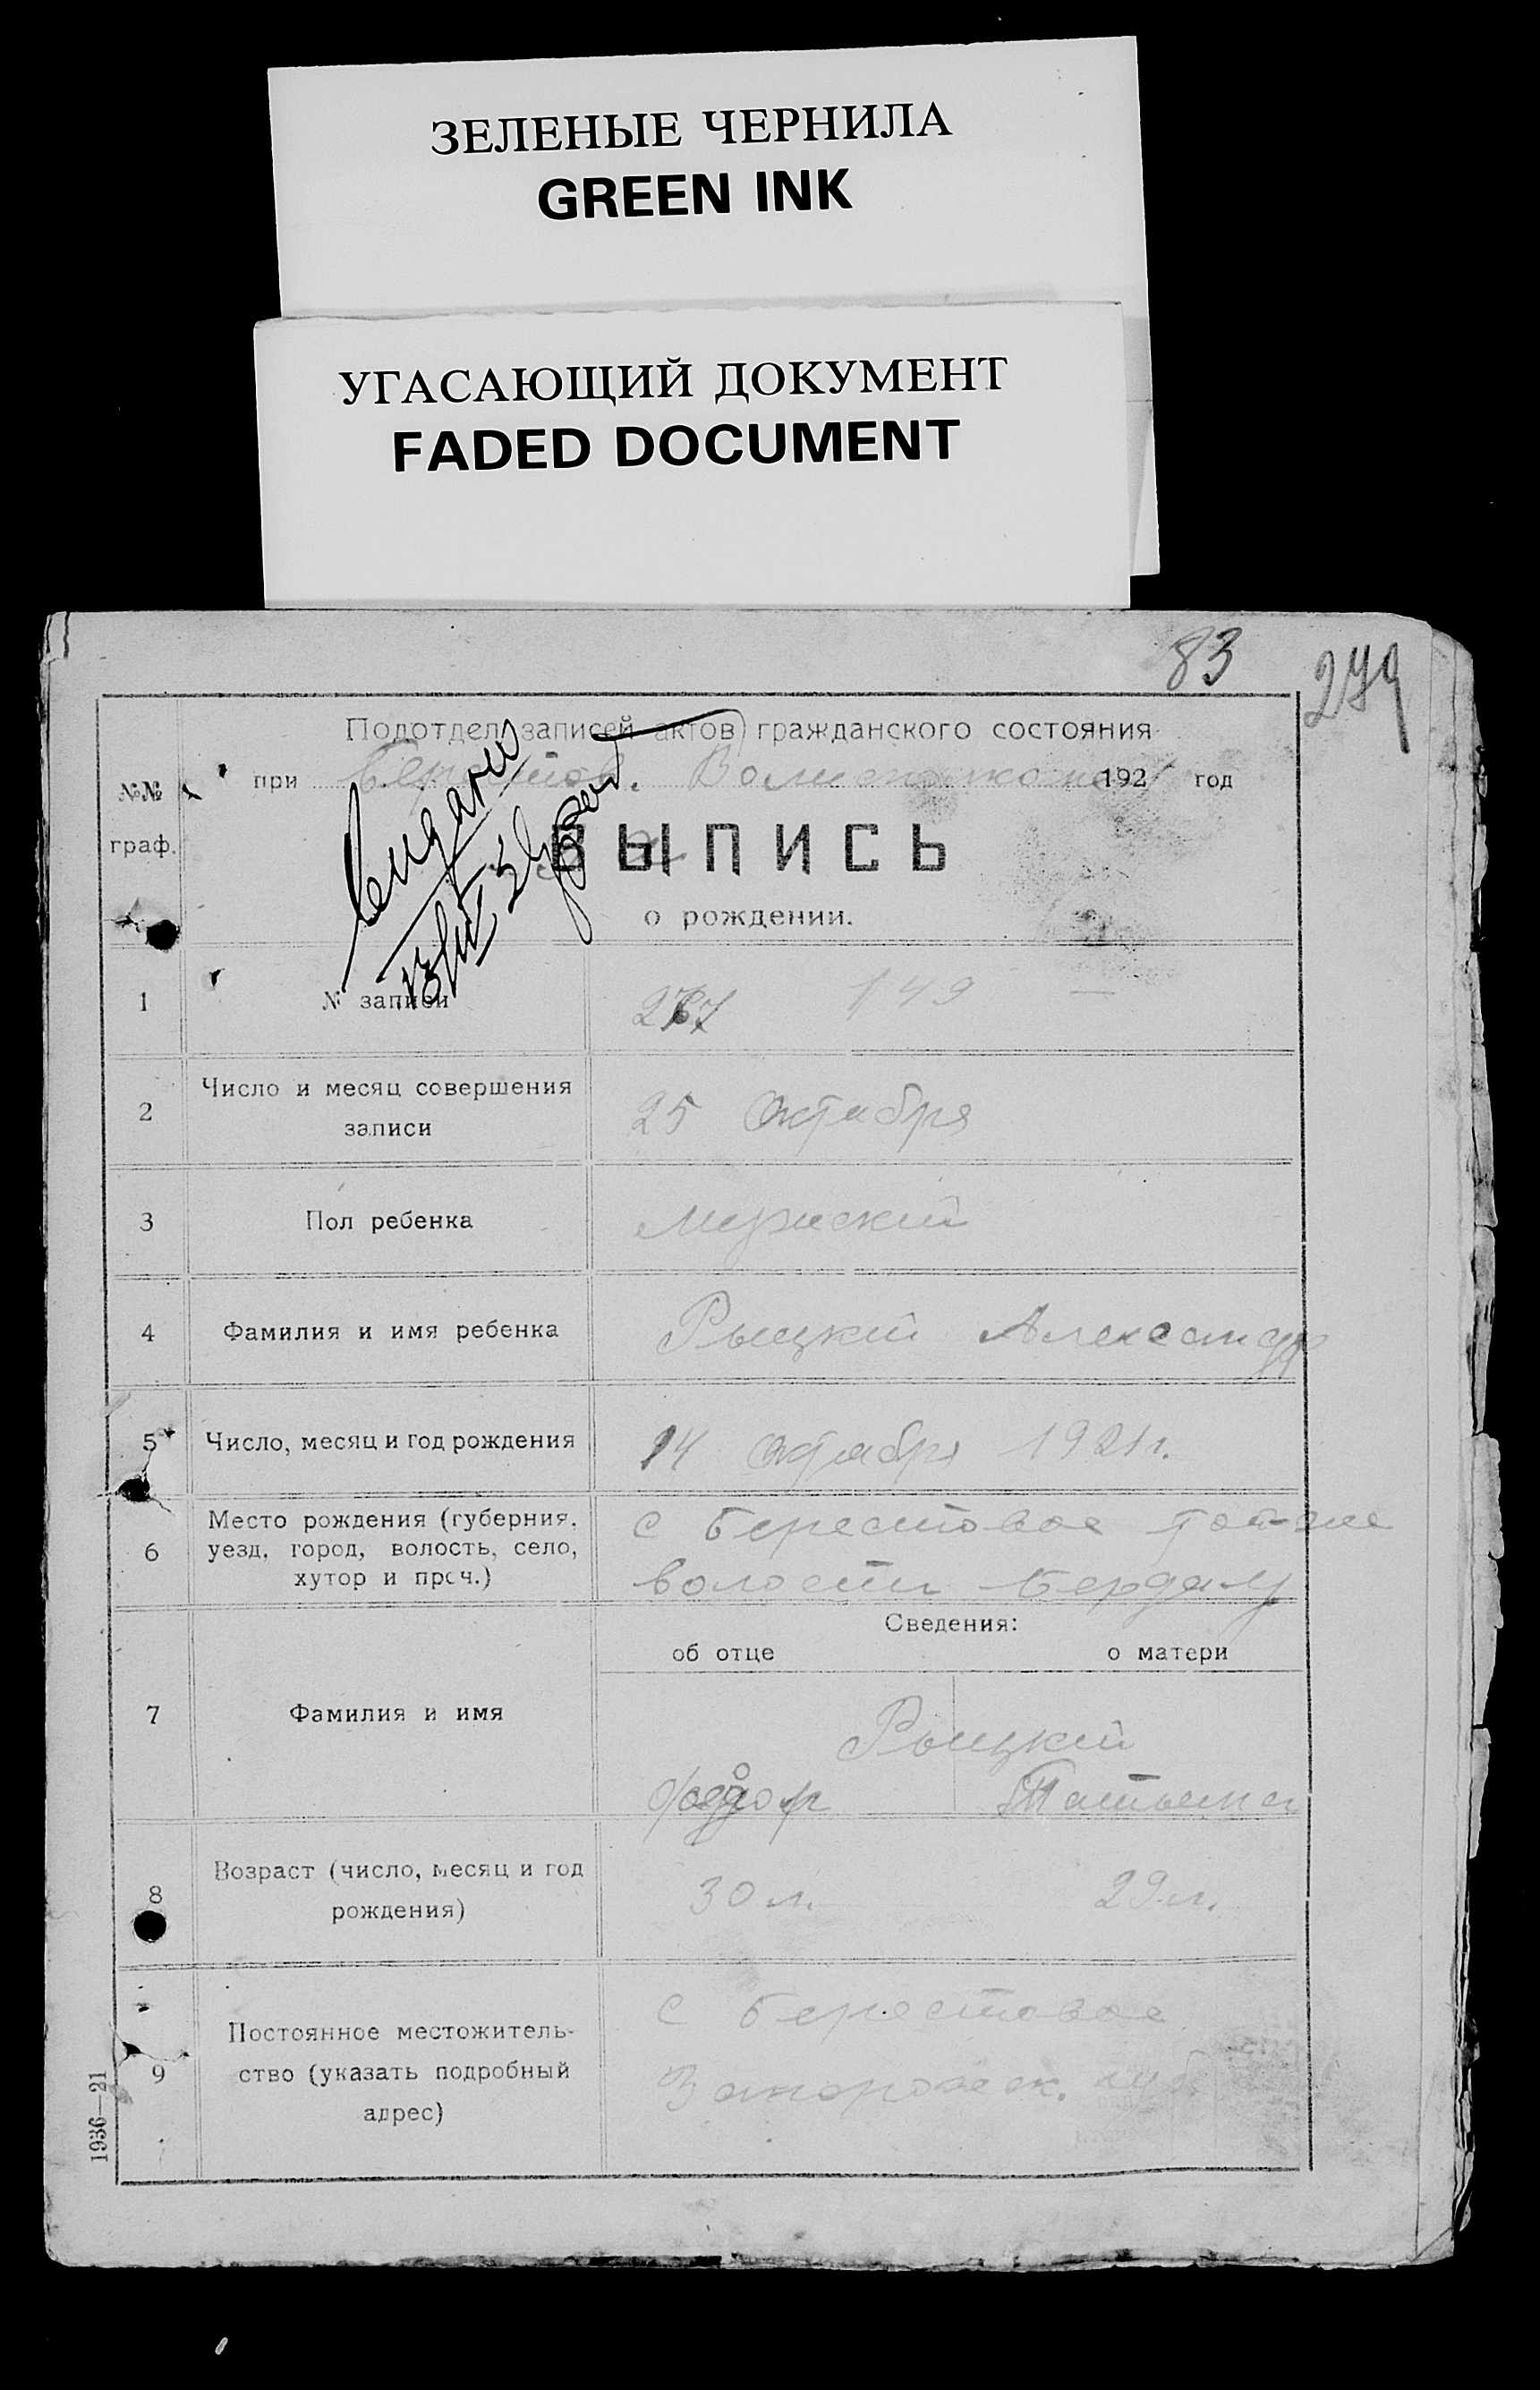 ЗЕЛЕНЫЕ ЧЕРНИЛА
GREEN INK
УГАСАЮЩИЙ ДОКУМЕНТ
FADED DOCUMENT
83
279
Подотдел записей актов гражданского состояния
№№ граф.
при Берестов. 192 год
ВЫПИСЬ
о рождении.
1 № записи 149
2 Число и месяц совершения записи 25 Октября
3 Пол ребенка мужский
4 Фамилия и имя ребенка Рыцкий Александр
5 Число, месяц и год рождения 14 Октября 1921 г.
6 Место рождения (губерния, уезд, город, волость, село, хутор и проч.) с Берестовое
волости Бердян
Сведения:
об отце о матери
7 Фамилия и имя Рыцкий
Федор Татьяна
8 Возраст (число, месяц и год рождения) 30 л. 29 л.
9 Постоянное местожительство (указать подробный адрес) с Берестовое
Запорожск. губ.
1936—21